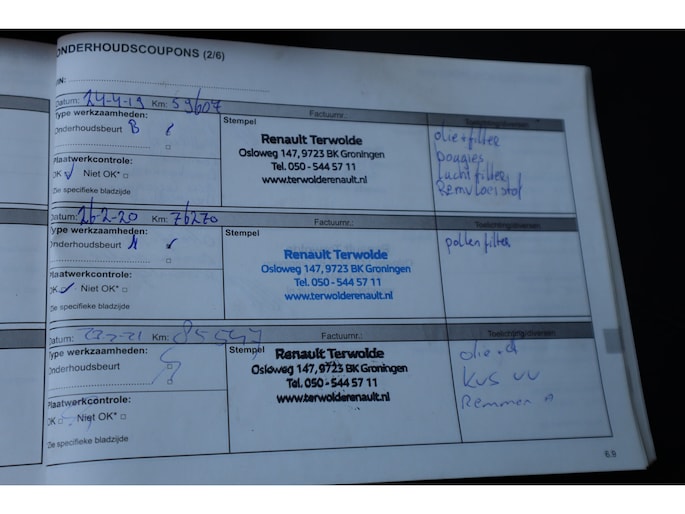 ONDERHOUDSCOUPONS (2/6)
Datum: 24-4-19 Km: 59607
Factuurnr.:
Toelichting/diversen
Type werkzaamheden:
Onderhoudsbeurt B
Plaatwerkcontrole:
OK Niet OK*
Zie specifieke bladzijde
Stempel
Renault Terwolde
Osloweg 147, 9723 BK Groningen
Tel. 050 - 544 57 11
www.terwolderenault.nl
olie+filter
bougies
Luchtfilter
Remvloeistof
Datum: 26-2-20 Km: 76270
Factuurnr.:
Toelichting/diversen
Type werkzaamheden:
Onderhoudsbeurt A
Plaatwerkcontrole:
OK Niet OK*
Zie specifieke bladzijde
Stempel
Renault Terwolde
Osloweg 147, 9723 BK Groningen
Tel. 050 - 544 57 11
www.terwolderenault.nl
pollenfilter
Datum: Km: 85547
Factuurnr.:
Toelichting/diversen
Type werkzaamheden:
Onderhoudsbeurt
Plaatwerkcontrole:
OK Niet OK*
Zie specifieke bladzijde
Stempel
Renault Terwolde
Osloweg 147, 9723 BK Groningen
Tel. 050 - 544 57 11
www.terwolderenault.nl
Remmen
6.9